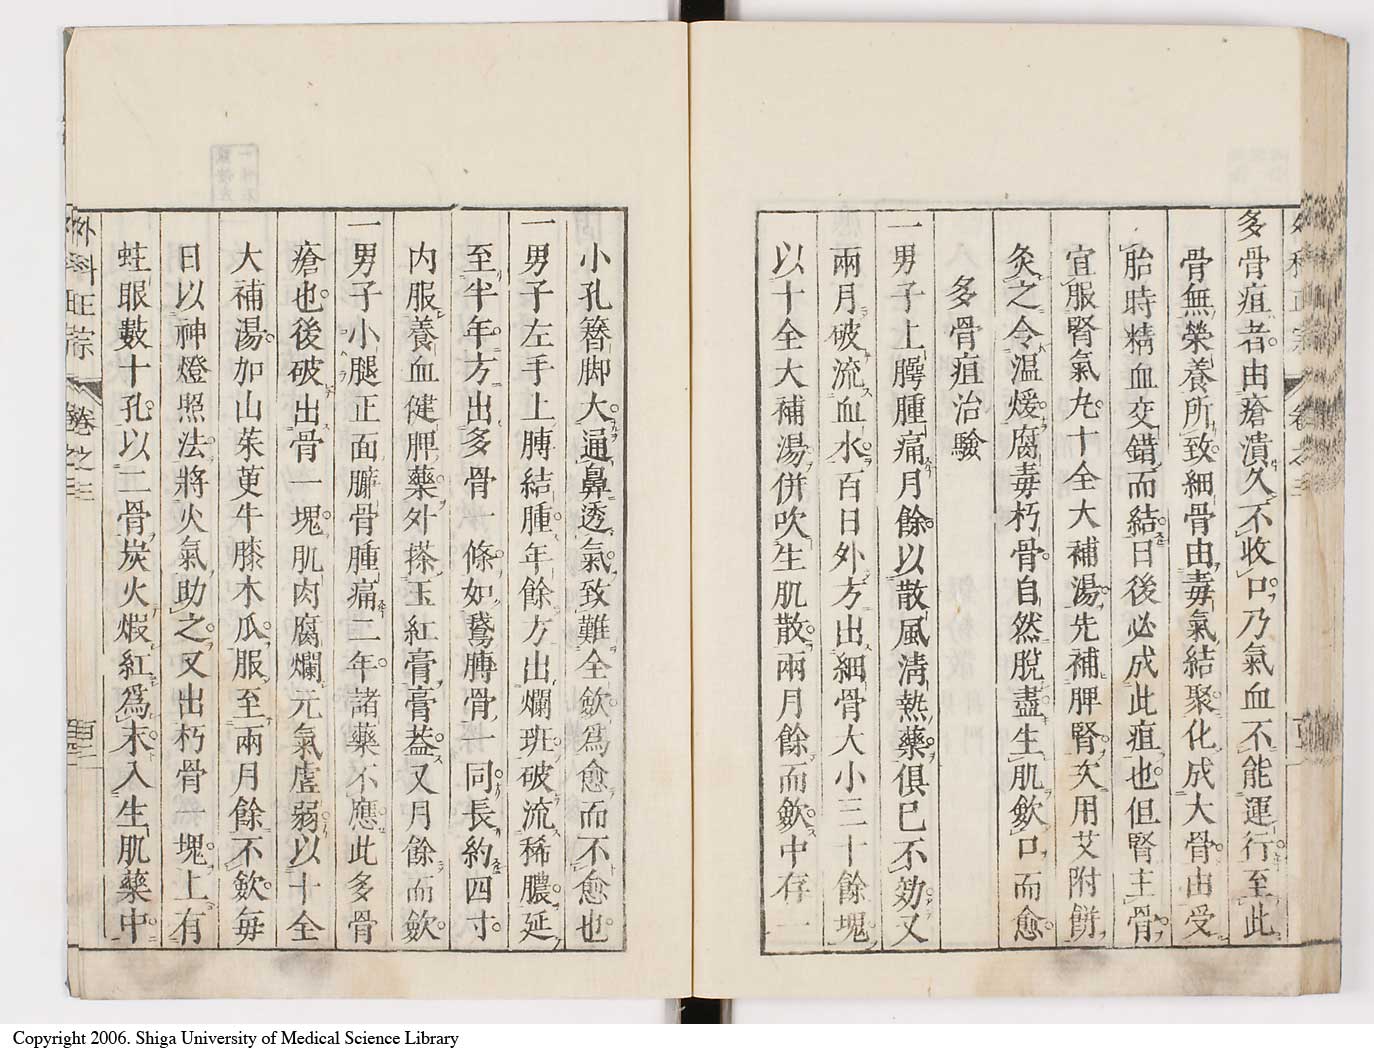 多骨疽者由瘡潰久不收口乃氣血不能運行至此
骨無榮養所致細骨由毒氣結聚化成大骨由受
胎時精血交錯而結日後必成此疽也但腎主骨
宜服腎氣丸十全大補湯先補脾腎次用艾附餅
灸之令温煖腐毒朽骨自然脫盡生肌歛口而愈
多骨疽治驗
一男子上腭腫痛月餘以散風清熱藥俱已不効又
兩月破流血水百日外方出細骨大小三十餘塊
以十全大補湯併吹生肌散兩月餘而歛中存一
小孔簪脚大通鼻透氣致難全歛爲愈而不愈也
一男子左手上膊結腫年餘方出爛班破流稀膿延
至半年方出多骨一條如鵞膊骨一同長約四寸
内服養血健脾藥外搽玉紅膏膏葢又月餘而歛
一男子小腿正面臁骨腫痛二年諸藥不應此多骨
瘡也後破出骨一塊肌肉腐爛元氣虛弱以十全
大補湯加山茱萸牛膝木瓜服至兩月餘不歛每
日以神燈照法將火氣助之又出朽骨一塊上有
蛀眼數十孔以二骨炭火煆紅爲末入生肌藥中
外科正宗 卷之三
Copyright 2006. Shiga University of Medical Science Library